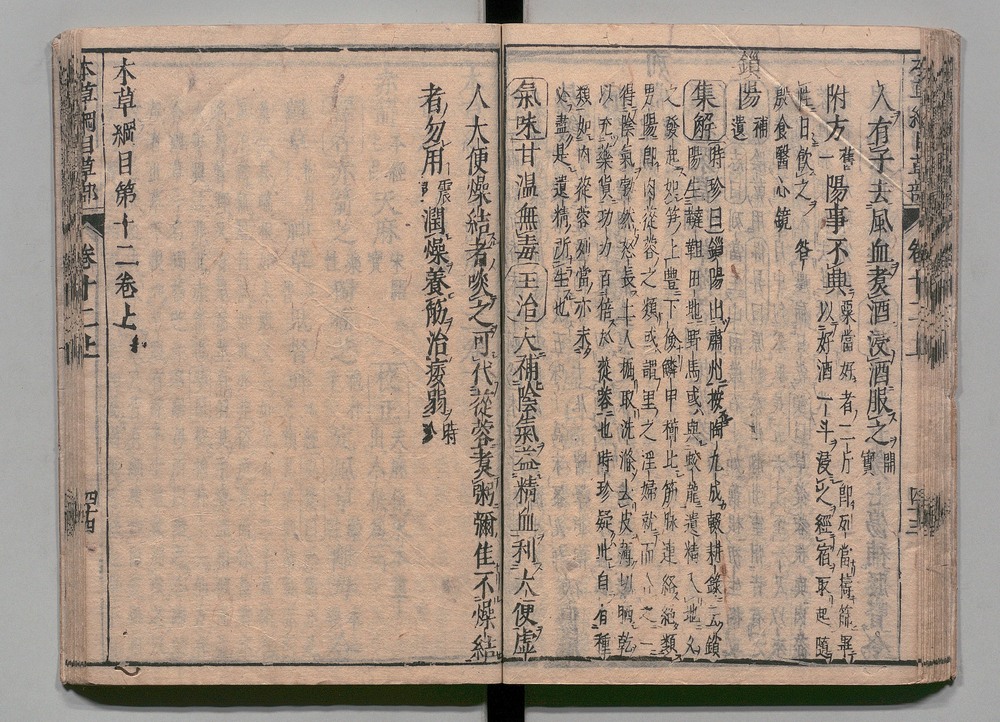 人有子去風血煑酒浸酒服之開寶
附方舊一陽事不興粟當好者二斤即列當擣篩畢
以好酒一斗浸之經宿取起隨
性日飲之昝
殷食醫心鏡
鎖陽補遺
集解時珍曰鎖陽出肅州按陶九成輟耕錄云鎖
陽生韃靼田地野馬或與蛟龍遺精入地久
之發起如笋上豐下儉鱗甲櫛比筋脉連絡絕類
男陽即肉蓯蓉之類或謂里之淫婦就而合之一
得陰氣勃然怒長土人掘取洗滌去皮薄切晒乾
以充藥貨功力百倍於蓯蓉也時珍疑此自有種
類如肉蓯蓉列當亦未
必盡是遺精所生也
氣味甘溫無毒主治大補陰氣益精血利大便虛
人大便燥結者啖之可代蓯蓉煑粥彌佳不燥結
者勿用震亨潤燥養筋治痿弱時珍
本草綱目第十二卷上終
本草綱目草部 卷十二上 四十四